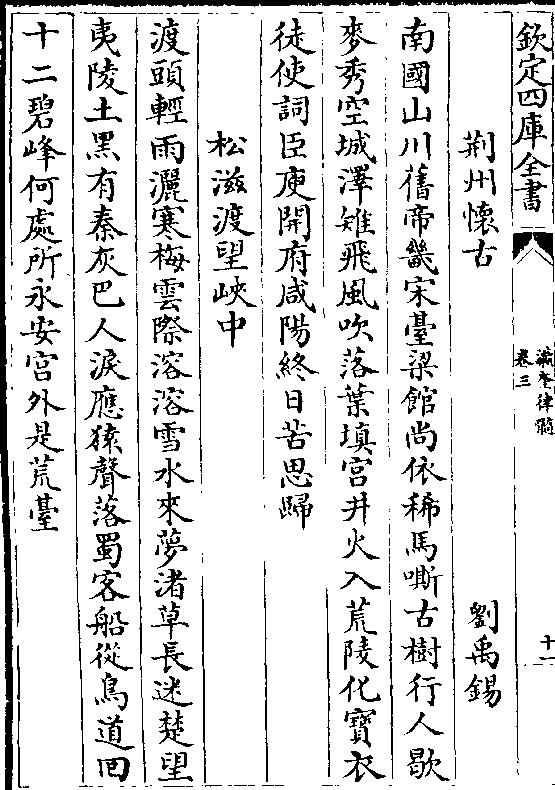 欽定四庫全書
瀛奎律髓
卷三
十一
荆州懷古 劉禹錫
南國山川舊帝畿宋臺梁館尚依稀馬嘶古樹行人歇
麥秀空城澤雉飛風吹落葉填宫井火入荒陵化寶衣
徒使詞臣庾開府咸陽終日苦思歸
松滋渡望峽中
渡頭輕雨灑寒梅雲際溶溶雪水來夢渚草長迷楚望
夷陵土黑有秦灰巴人淚應猿聲落蜀客船從鳥道回
十二碧峰何處所永安宫外是荒臺